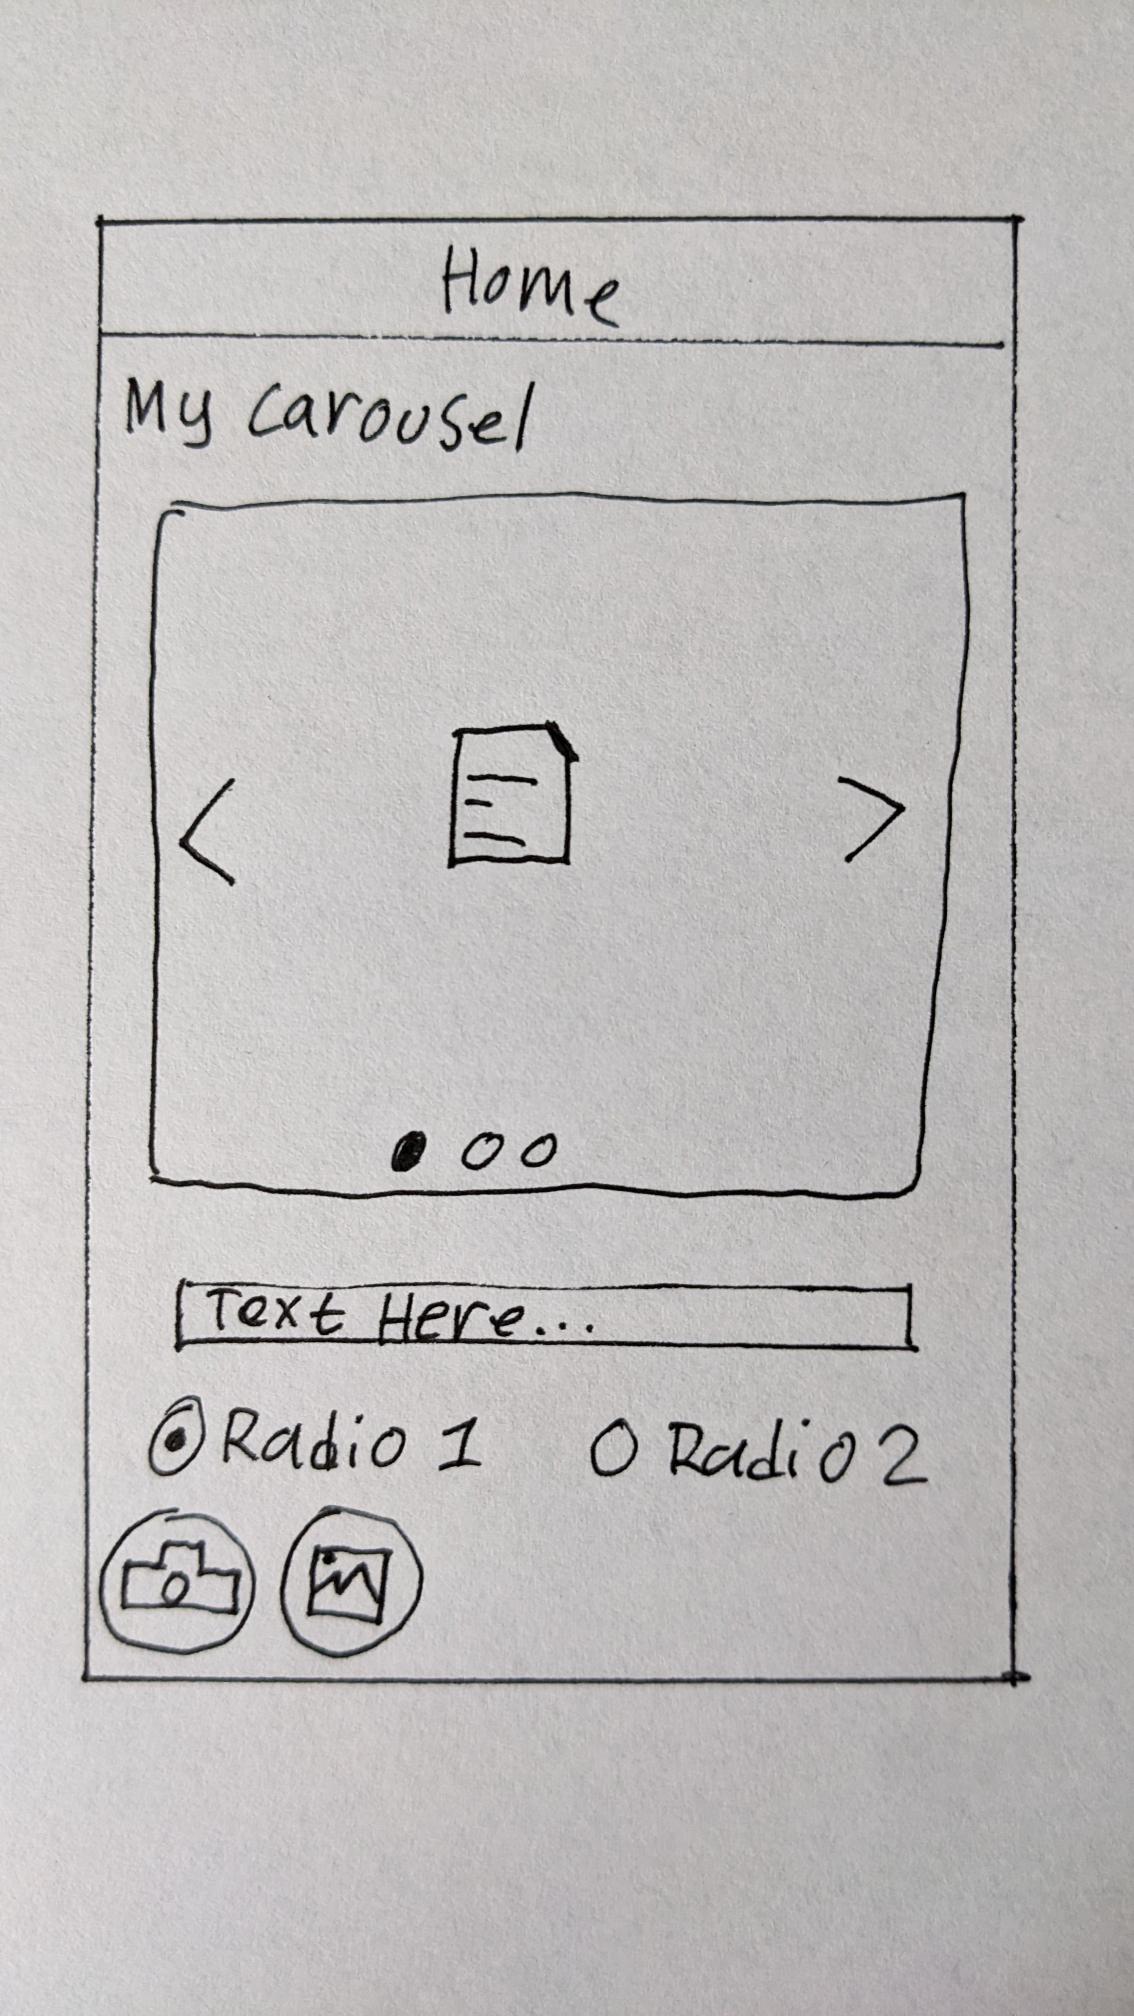 Home
My Carousel
Text Here...
Radio 1 Radio 2